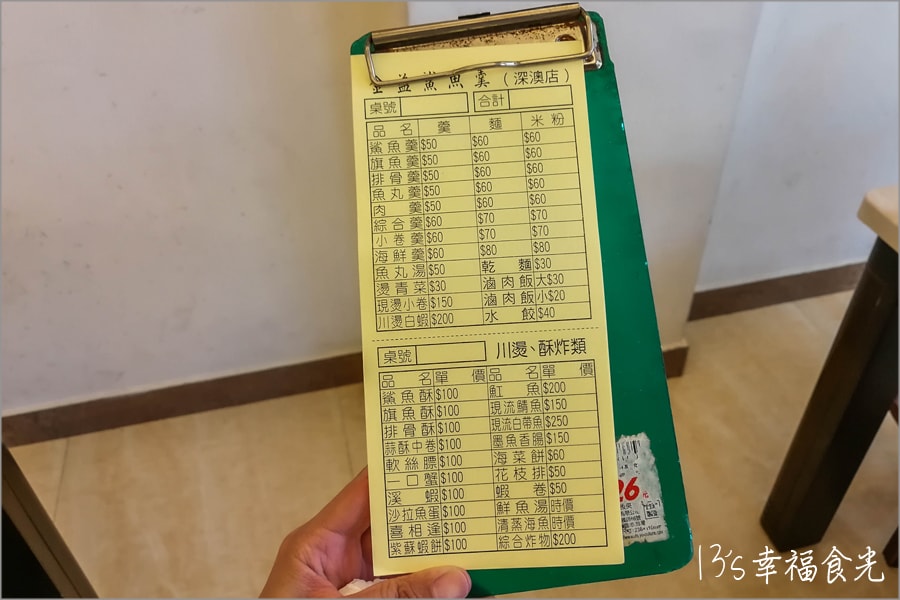 益鯊魚羹（深澳店）
桌號 合計
品名 羹 麵 米粉
鯊魚羹 $50 $60 $60
旗魚羹 $50 $60 $60
排骨羹 $50 $60 $60
魚丸羹 $50 $60 $60
肉羹 $50 $60 $60
綜合羹 $60 $70 $70
小卷羹 $60 $70 $70
海鮮羹 $60 $80 $80
魚丸湯 $50 乾麵 $30
燙青菜 $30 滷肉飯 大$30
現燙小卷 $150 滷肉飯 小$20
川燙白蝦 $200 水餃 $40
桌號 川燙、酥炸類
品名 單價 品名 單價
鯊魚酥 $100 魟魚 $200
旗魚酥 $100 現流鯖魚 $150
排骨酥 $100 現流白帶魚 $250
蒜酥中卷 $100 墨魚香腸 $150
軟絲膘 $100 海菜餅 $60
一口蟹 $100 花枝排 $50
溪蝦 $100 蝦卷 $50
沙拉魚蛋 $100 鮮魚湯 時價
喜相逢 $100 清蒸海魚 時價
紫蘇蝦餅 $100 綜合炸物 $200
26元
13's幸福食光